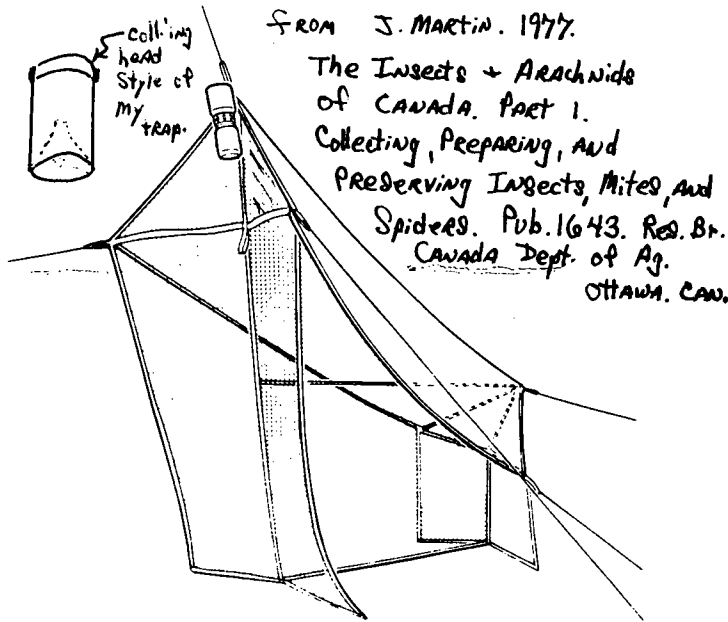 coll'ing
head
Style of
my
trap.
FROM J. MARTIN. 1977.
The Insects + Arachnids
of CANADA. Part 1.
Collecting, Preparing, and
Preserving Insects, Mites, and
Spiders. Pub. 1643. Res. Br.
CANADA Dept. of Ag.
OTTAWA. CAN.